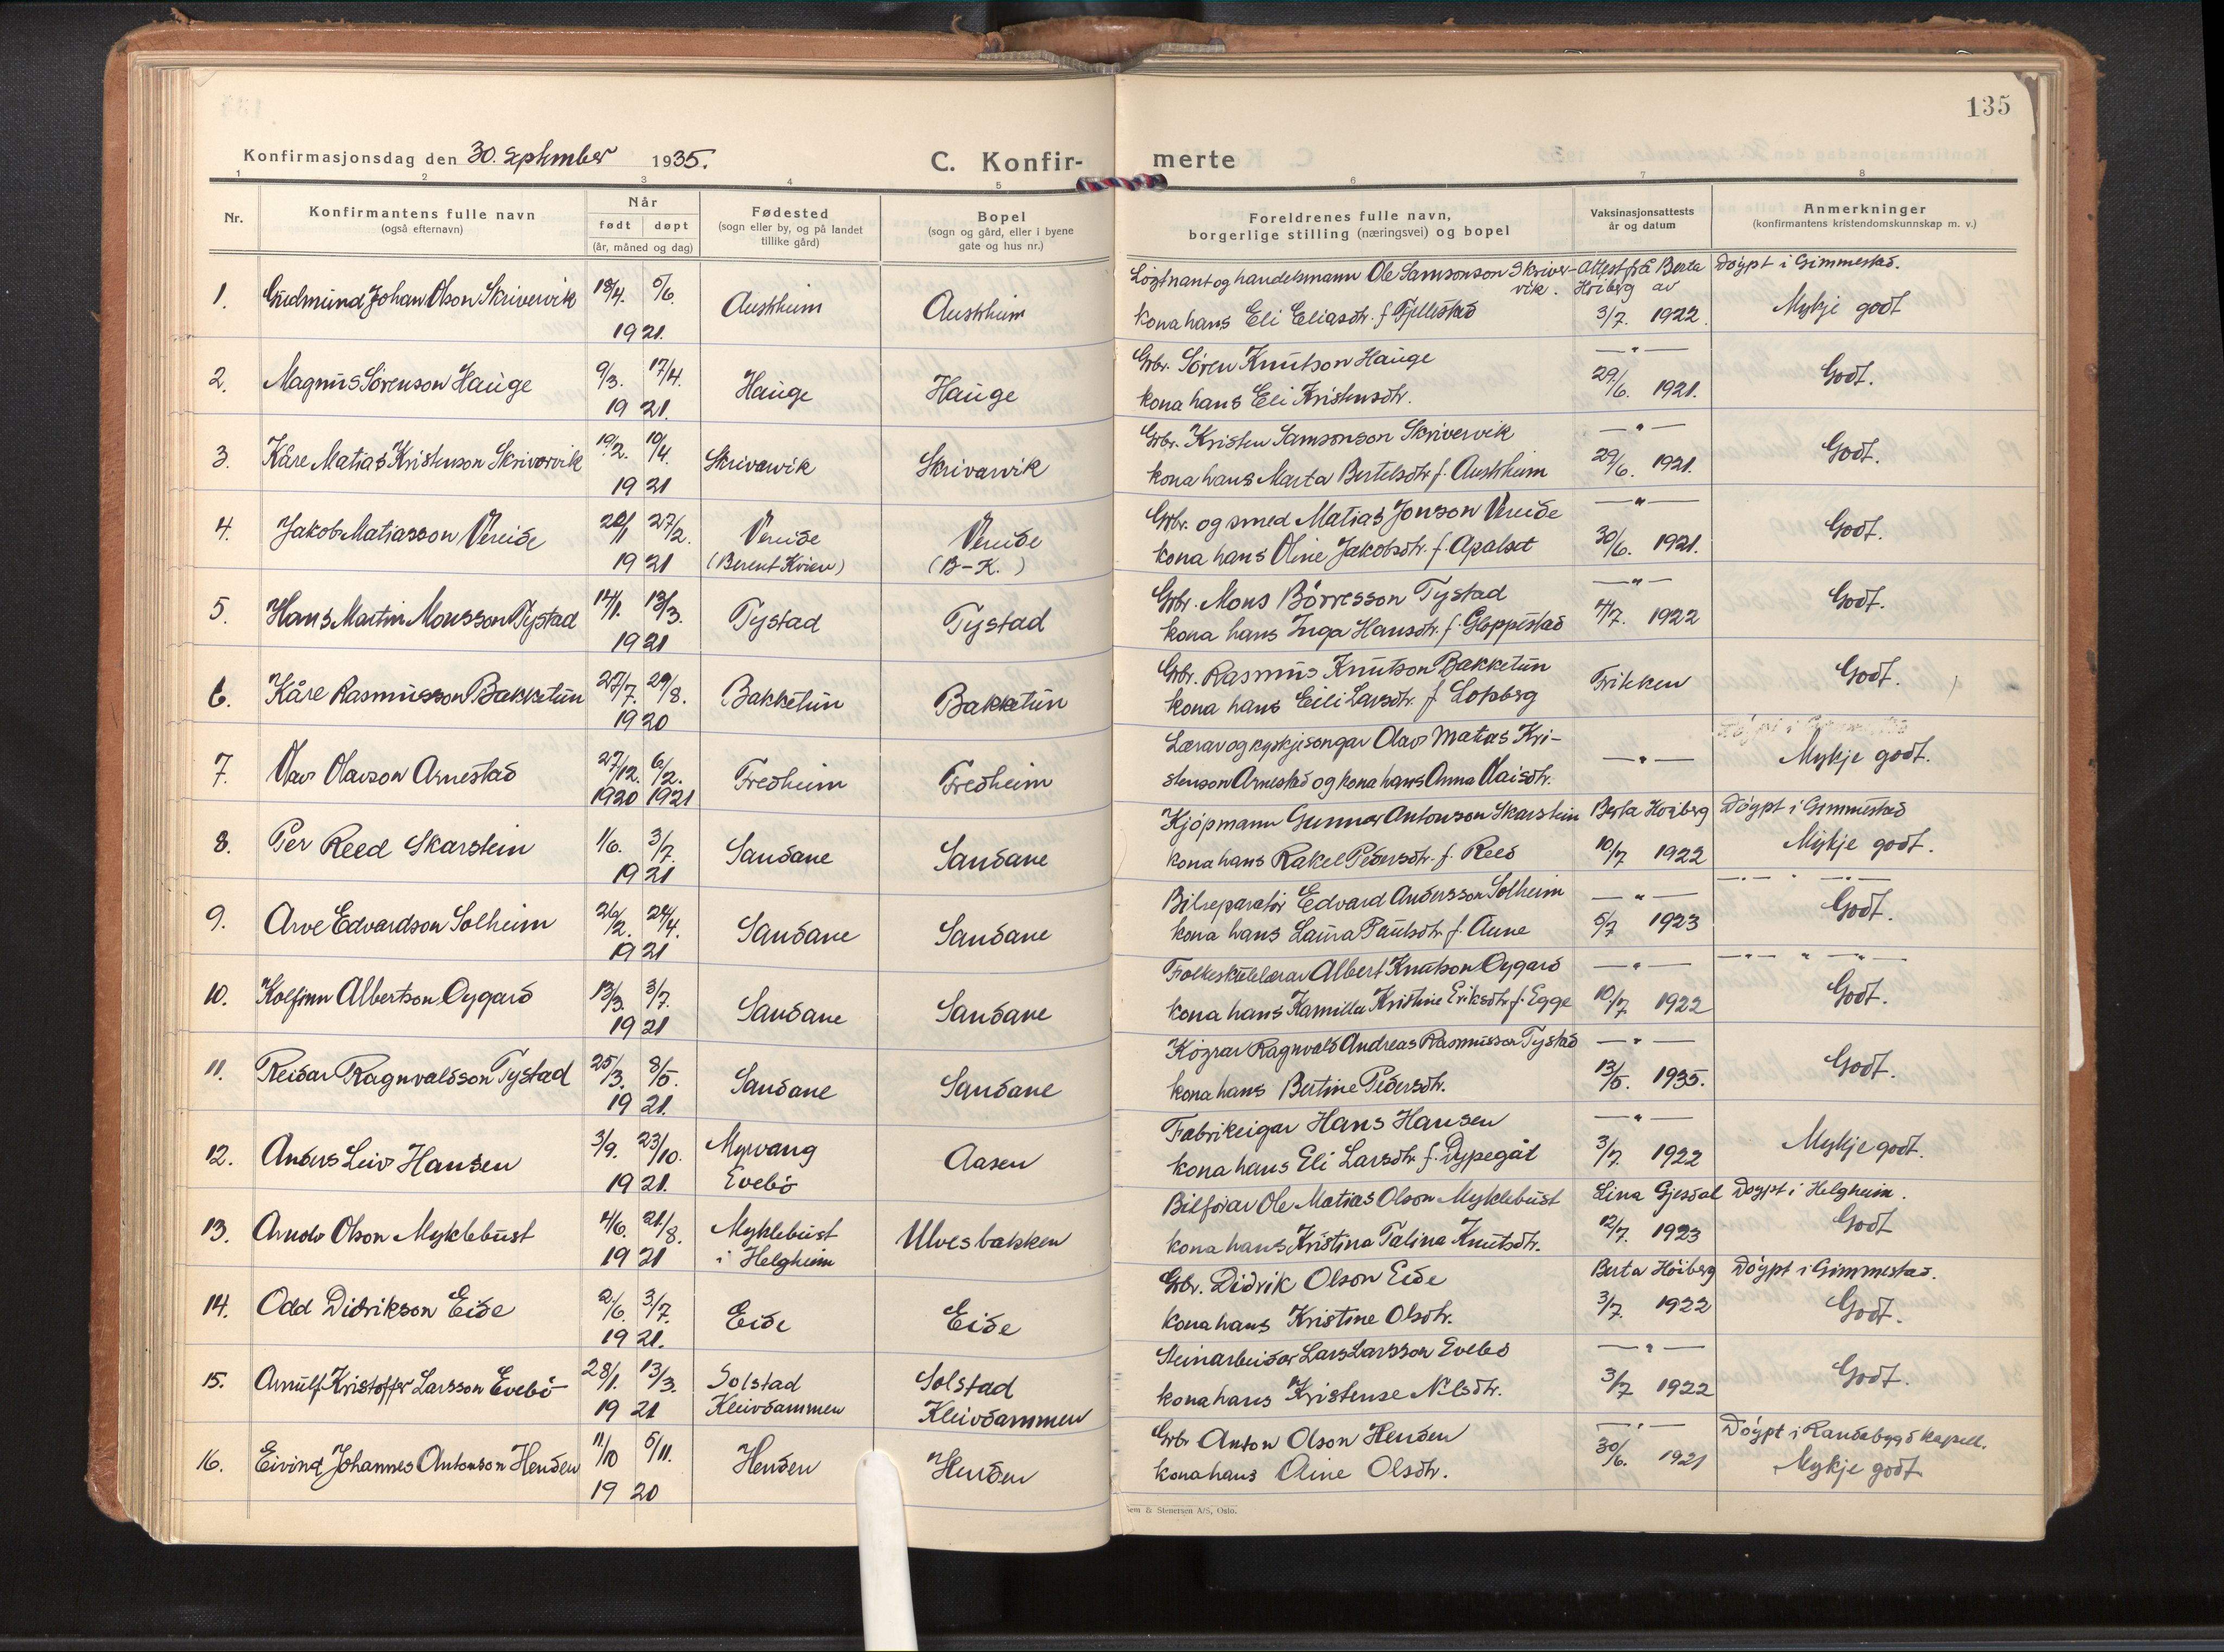 135
Konfirmasjonsdag den 30. september 1935.
C. Konfir- merte
1 2 3 4 5 6 7 8
Nr.
Konfirmantens fulle navn
(også efternavn)
Når
født døpt
(år, måned og dag)
Fødested
(sogn eller by, og på landet
tillike gård)
Bopel
(sogn og gård, eller i byene
gate og hus nr.)
Foreldrenes fulle navn,
borgerlige stilling (næringsvei) og bopel
Vaksinasjonsattests
år og datum
Anmerkninger
(konfirmantens kristendomskunnskap m. v.)
1. Gudmund Johan Olson Skrivervik 18/4. 5/6. 1921. Austrheim Austrheim
Løytnant og handelsmann Ole Samsonson Skriver-
vik.
kona hans Eli Eliasdtr. f. Fyllestad
Attest frå Berta
Høiberg av
3/7. 1922.
Døypt i Gimmestad.
Mykje godt
2. Magnus Sörenson Hauge 9/3. 17/4. 1921. Hauge Hauge
Gbr. Sören Knutson Hauge
kona hans Eli Kristensdtr.
— " —
29/6. 1921.
Godt.
3. Kåre Matias Kristenson Skrivervik 19/2. 10/4. 1921 Skrivarvik Skrivarvik
Gbr. Kristen Samsonson Skrivervik
kona hans Marta Bertelsdtr. f. Austrheim
— " —
29/6. 1921.
Godt.
4. Jakob Matiasson Vereide 20/1 27/2. 1921 Vereide Vereide
(Berent Kvien) (B-K.)
Gbr. og smed Matias Jonson Vereide
kona hans Oline Jakobsdtr. f. Apalset
— " —
30/6. 1921.
Godt.
5. Hans Martin Monsson Tystad 14/1. 13/3. 1921 Tystad Tystad
Gbr. Mons Börresson Tystad
kona hans Inga Hansdtr. f. Gloppestad
— " —
4/7. 1922
Godt.
6. Kåre Rasmusson Bakketun 27/7. 29/8. 1920 Bakketun Bakketun
Gbr. Rasmus Knutson Bakketun
kona hans Eili Larsdtr. f. Lotsberg
Frikken
Godt.
7. Olav Olavson Arnestad 27/12. 6/2. 1920 1921 Fredheim Fredheim
Lærar og kyrkjesongar Olav Matias Kri-
stenson Arnestad og kona hans Anna Olaisdtr.
— " —
Mykje godt.
8. Per Reed Skarstein 1/6. 3/7. 1921 Sandane Sandane
Kjöpmann Gunnar Antonson Skarstein
kona hans Rakel Pedersdtr. f. Reed
Berta Höiberg
10/7 1922
Döypt i Gimmestad
Mykje godt.
9. Arve Edvardson Solheim 26/2. 24/4. 1921 Sandane Sandane
Bilreparatör Edvard Andersson Solheim
kona hans Laura Paulsdtr f. Aune
— " —
5/7 1923
—.— " —.—
Godt.
10. Kolfinn Albertson Oygard 13/3. 3/7. 1921 Sandane Sandane
Folkeskulelærar Albert Knutson Oygard
kona hans Kamilla Kristine Eriksdtr f. Egge
— " —
10/7 1922
—.— " —.—
Godt.
11. Reidar Ragnvaldsson Tystad 25/3. 8/5. 1921. Sandane Sandane
Köyrar Ragnvald Andreas Rasmusson Tystad
kona hans Bertine Pedersdtr.
— " —
13/5. 1935.
Godt.
12. Anders Leiv Hansen 3/9. 23/10. 1921. Myrvang Aasen
Evebö
Fabrikeigar Hans Hansen
kona hans Eli Larsdtr. f. Dypegål
— " —
3/7. 1922
Mykje godt.
13. Arndv Olson Myklebust 4/6. 21/8. 1921 Myklebust Ulvesbakken
i Helgheim
Bilförar Ole Matias Olson Myklebust
kona hans Kristina Talina Knutsdtr.
Lina Gjesdal
12/7. 1923
Döypt i Helgheim.
Godt
14. Odd Didrikson Eide 2/6. 3/7. 1921. Eide Eide
Gbr. Didrik Olson Eide
kona hans Kristine Olsdtr.
Berta Höiberg
3/7. 1922
Döypt i Gimmestad.
Godt.
15. Arnulf Kristoffer Larsson Evebö 28/1. 13/3. 1921 Solstad Solstad
Kleivdammen Kleivdammen
Steinarbeidar Lars Larsson Evebö
kona hans Kristense Nilsdtr.
— " —
3/7 1922
Godt.
16. Eivind Johannes Antonson Henden 11/10 5/11. 1920 Henden Henden
Gbr Anton Olson Henden
kona hans Aine Olsdtr.
— " —
30/6. 1921
Döypt i Randabygd kapell.
Mykje godt
Sem & Stenersen A/S, Oslo.